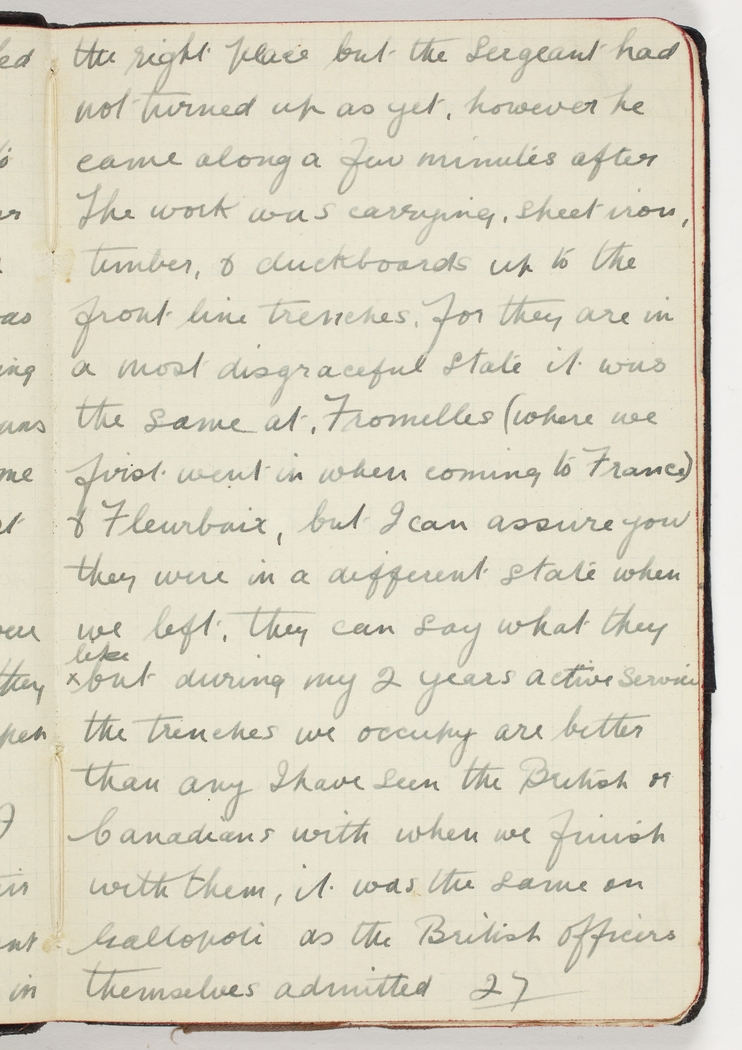 the right place but the Sergeant had
not turned up as yet, however he
came along a few minutes after
The work was carrying, sheet iron,
timber, & duckboards up to the
front line trenches, for they are in
a most disgraceful state it was
the same at, Fromelles (where we
first went in when coming to France)
& Fleurbaix, but I can assure you
they were in a different state when
we left, they can say what they
like
x but during my 2 years active service
the trenches we occupy are better
than any I have seen the British or
Canadians with when we finish
with them, it was the same on
Gallopoli as the British officers
themselves admitted 27